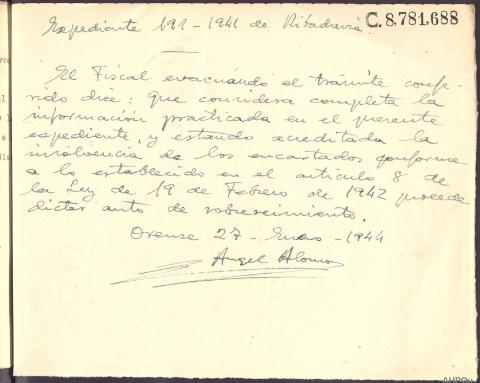 Expediente 191 - 1941 de Ribadavia
C.8,781.688
El Fiscal evacuando el trámite confe-
rido dice: que considera completa la
información practicada en el presente
expediente, y estando acreditada la
insolvencia de los encartados conforme
a lo establecido en el artículo 8 de
la Ley de 19 de Febrero de 1942 procede
dictar auto de sobreseimiento.
Orense 27 - Enero - 1944
Angel Alonso